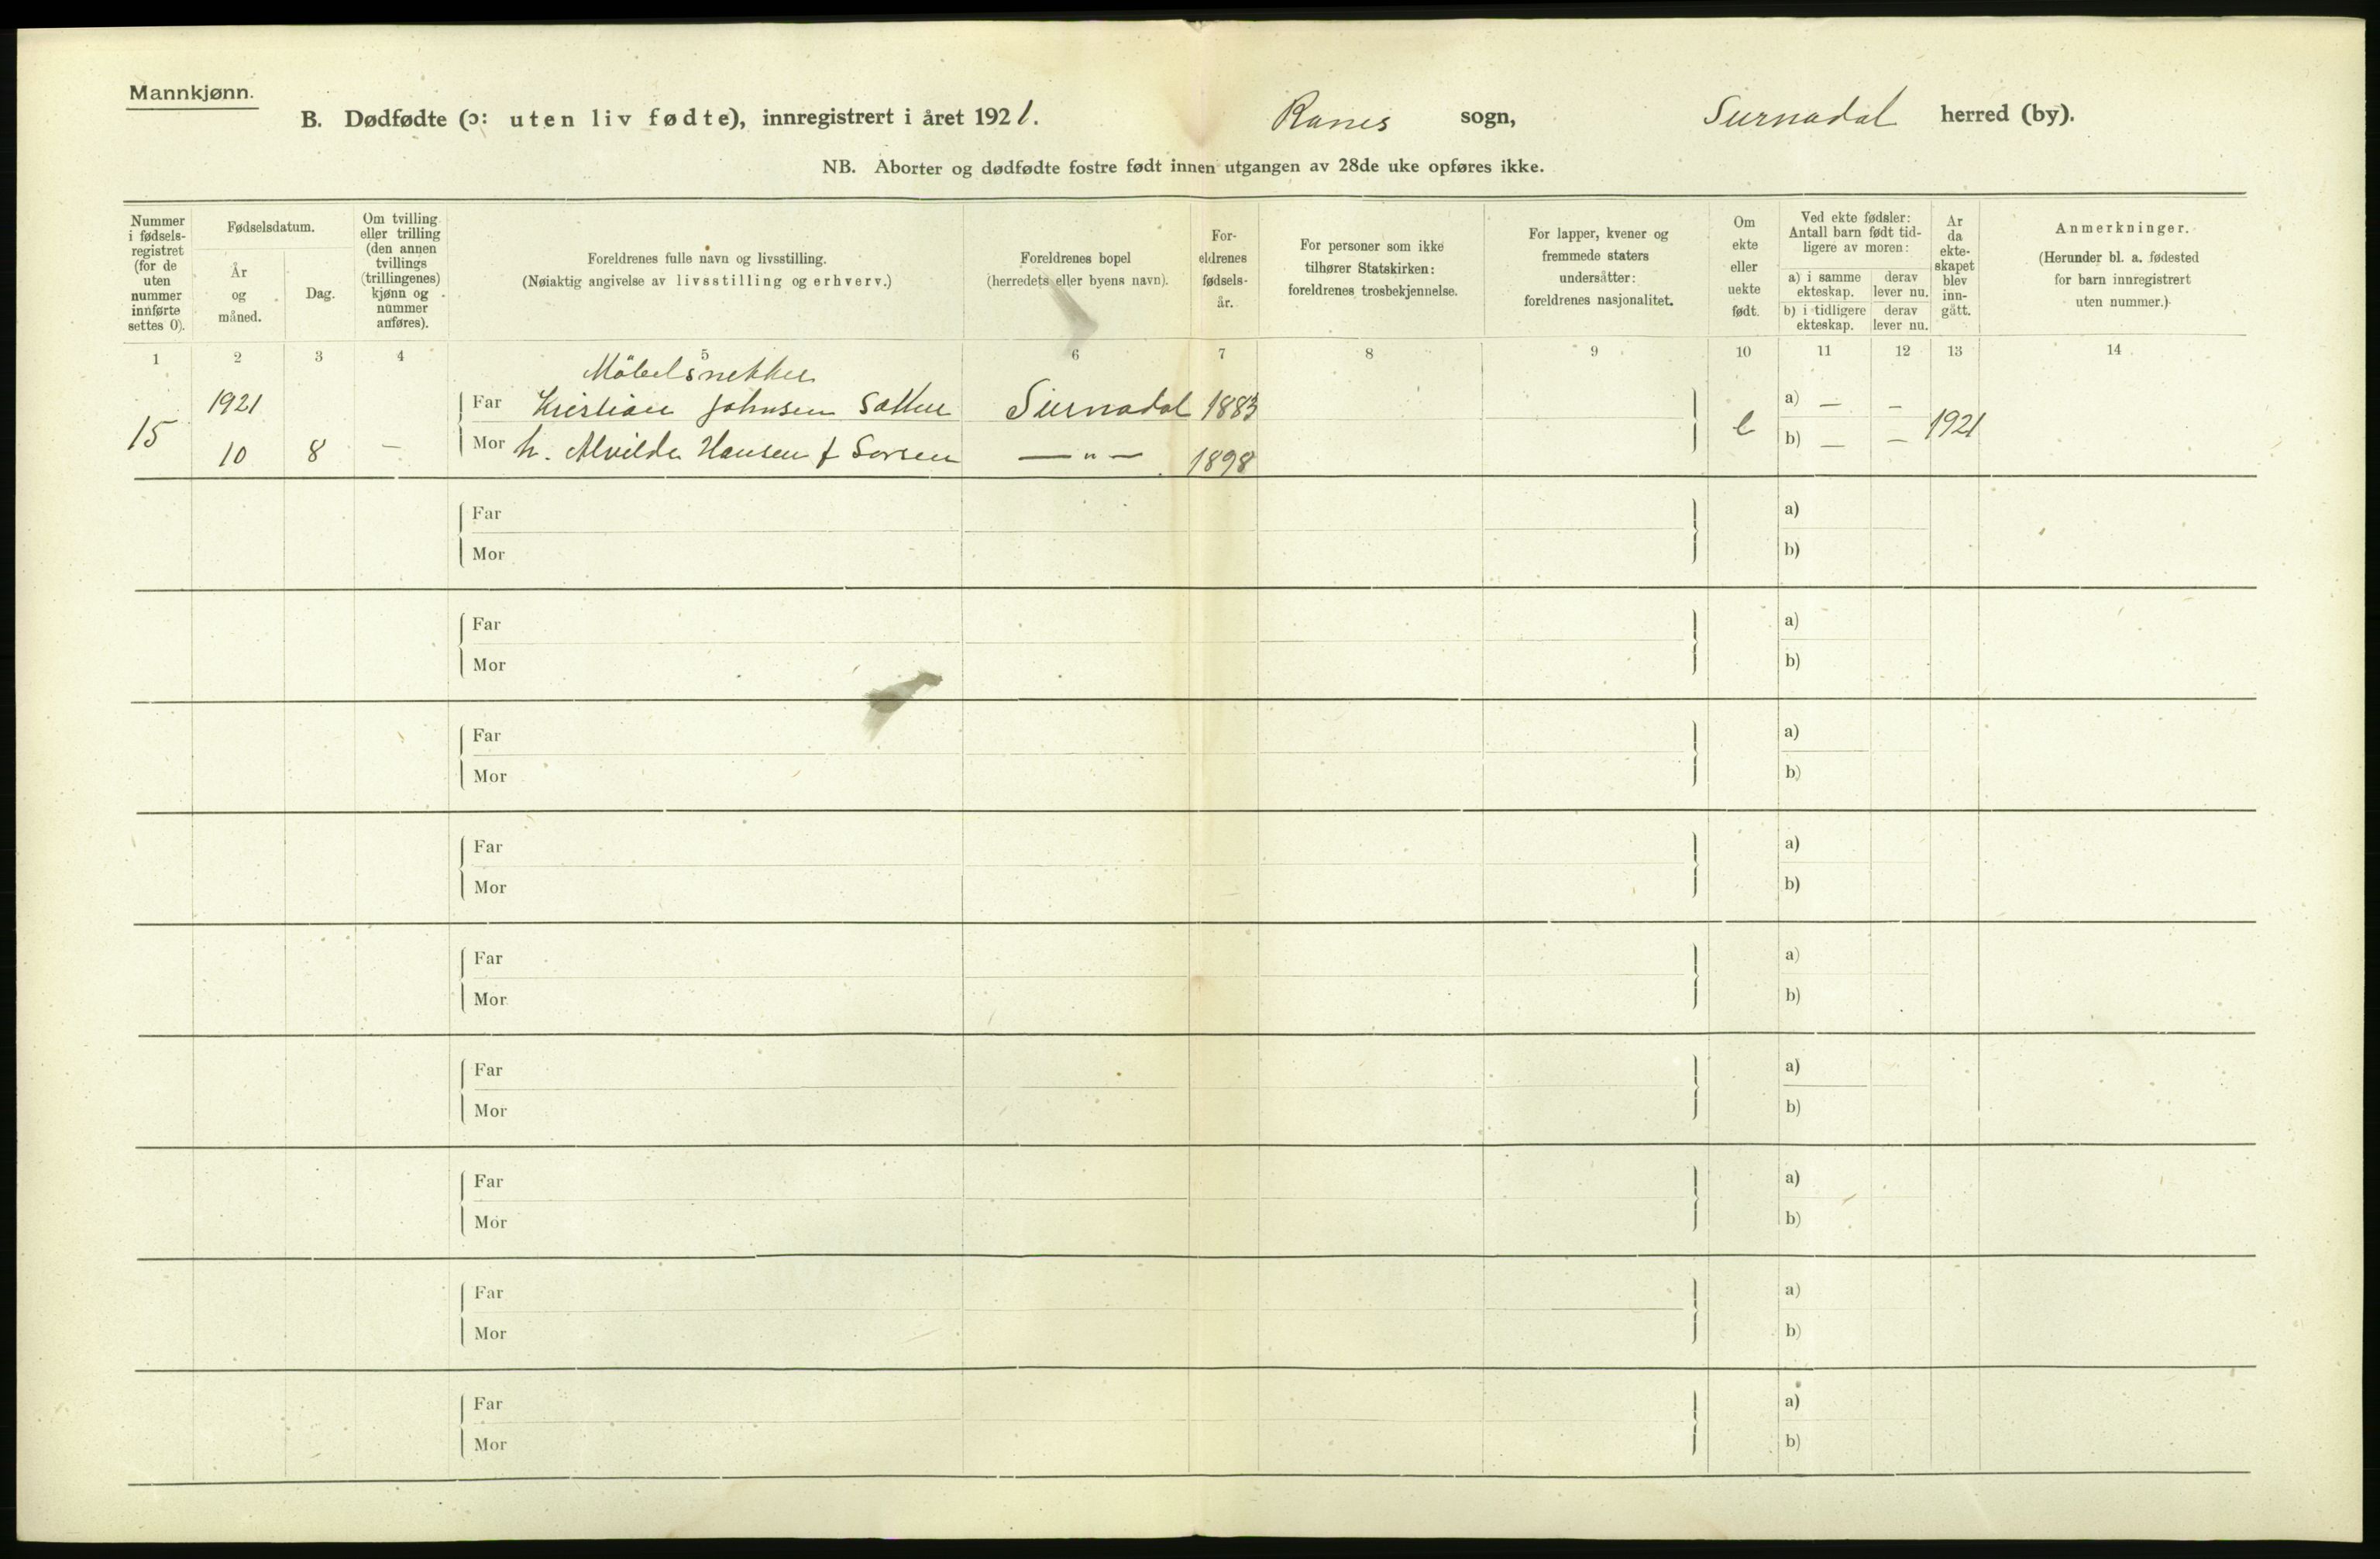 Mannkjønn.
B. Dødfødte (ɔ: uten liv fødte), innregistrert i året 1921. Ranes sogn, Surnadal herred (by).
NB. Aborter og dødfødte fostre født innen utgangen av 28de uke opføres ikke.
Nummer i fødsels-registret (for de uten nummer innførte settes 0).
Fødselsdatum.
År og måned.
Dag.
Om tvilling eller trilling (den annen tvillings (trillingenes) kjønn og nummer anføres).
Foreldrenes fulle navn og livsstilling.
(Nøiaktig angivelse av livsstilling og erhverv.)
Foreldrenes bopel
(herredets eller byens navn).
For-eldrenes fødsels-år.
For personer som ikke tilhører Statskirken: foreldrenes trosbekjennelse.
For lapper, kvener og fremmede staters undersåtter: foreldrenes nasjonalitet.
Om ekte eller uekte født.
Ved ekte fødsler: Antall barn født tid-ligere av moren:
a) i samme ekteskap. derav lever nu.
b) i tidligere ekteskap. derav lever nu.
År da ekte-skapet blev inn-gått.
Anmerkninger.
(Herunder bl. a. fødested for barn innregistrert uten nummer.)
1 2 3 4 5 6 7 8 9 10 11 12 13 14
Möbelsnekker
1921 Far Kristian Johnsen Sæther Surnadal 1883 a) — —
15 10 8 — Mor h. Alvilde Hansen f. — " — 1898 e b) — — 1921
Far a)
Mor b)
Far a)
Mor b)
Far a)
Mor b)
Far a)
Mor b)
Far a)
Mor b)
Far a)
Mor b)
Far a)
Mor b)
Far a)
Mor b)
Far a)
Mor b)